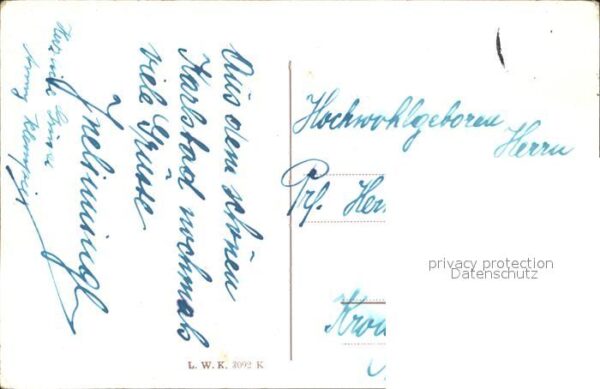 Aus dem schönen
Karlsbad nochmals
viele Grüsse
Herzliche Grüsse
Hochwohlgeboren
Herrn
Prf. Her
Kro
privacy protection
Datenschutz
L. W. K. 3092 K